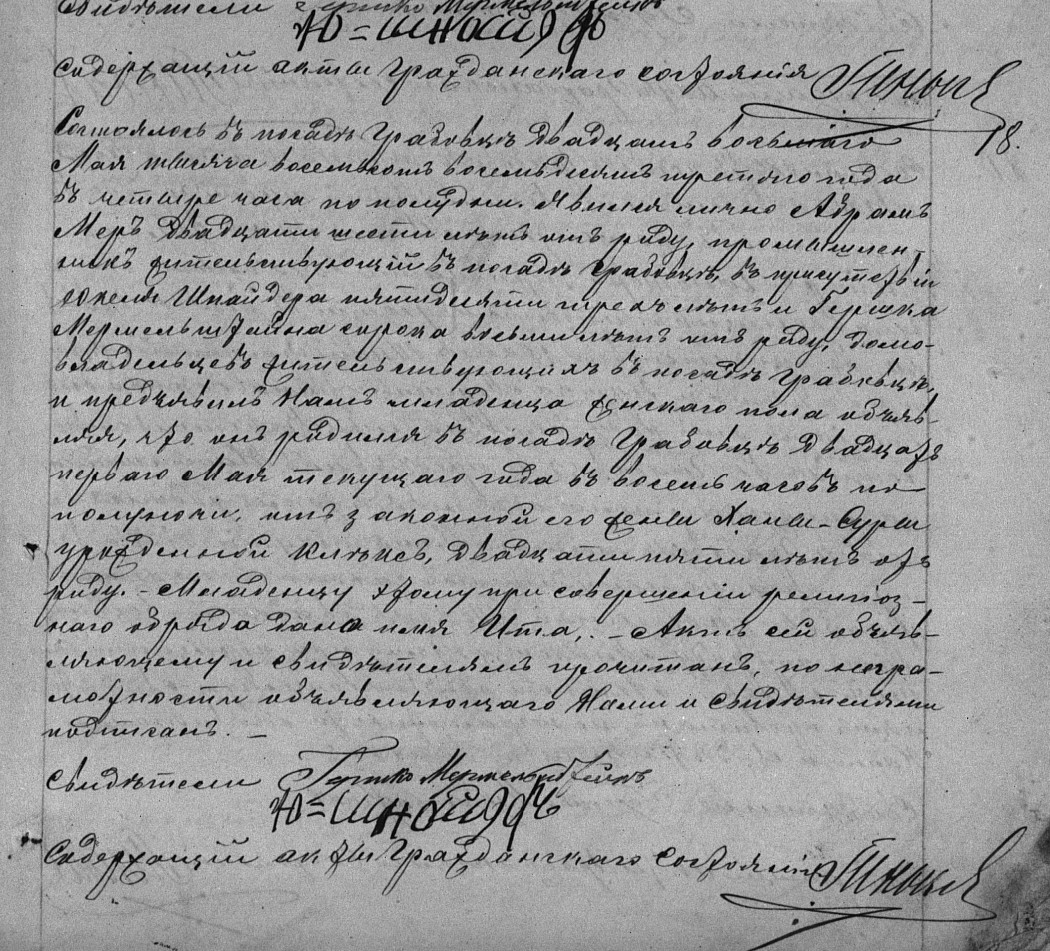 Свидѣтели Гершко Мермельштейнъ
Ю=Шнайдеръ
Содержащій акты гражданскаго состоянія
78.
Состоялось въ посадѣ Грабовцѣ двадцать восьмаго
Мая тысяча восемьсотъ восемьдесятъ третьяго года
въ четыре часа по полудни. Явился лично Абрамъ
Меръ двадцати шести лѣтъ отъ роду, промышлен-
никъ жительствующій въ посадѣ Грабовцѣ, въ присутствіи
Юкеля Шнайдера пятидесяти трехъ лѣтъ и Гершка
Мермельштайна сорока восьми лѣтъ отъ роду, домо-
владельцевъ жительствующихъ въ посадѣ Грабовцѣ,
и предъявилъ Намъ младенца женскаго пола объяв-
ляя, что онъ родился въ посадѣ Грабовцѣ двадцать
перваго Мая текущаго года въ восемь часовъ по
полуночи, отъ законной его жены Ханы-Суры
урожденной двадцати пяти лѣтъ отъ
роду. - Младенцу этому при совершеніи религіоз-
наго обряда дано имя Ита,. - Актъ сей объяв-
ляющему и свидѣтелямъ прочитанъ, по негра-
мотности объявляющаго Нами и свидѣтелями
подписанъ. -
Свидѣтели Гершко Мермельштейнъ
Ю=Шнайдеръ
Содержащій акты Гражданскаго Состоянія